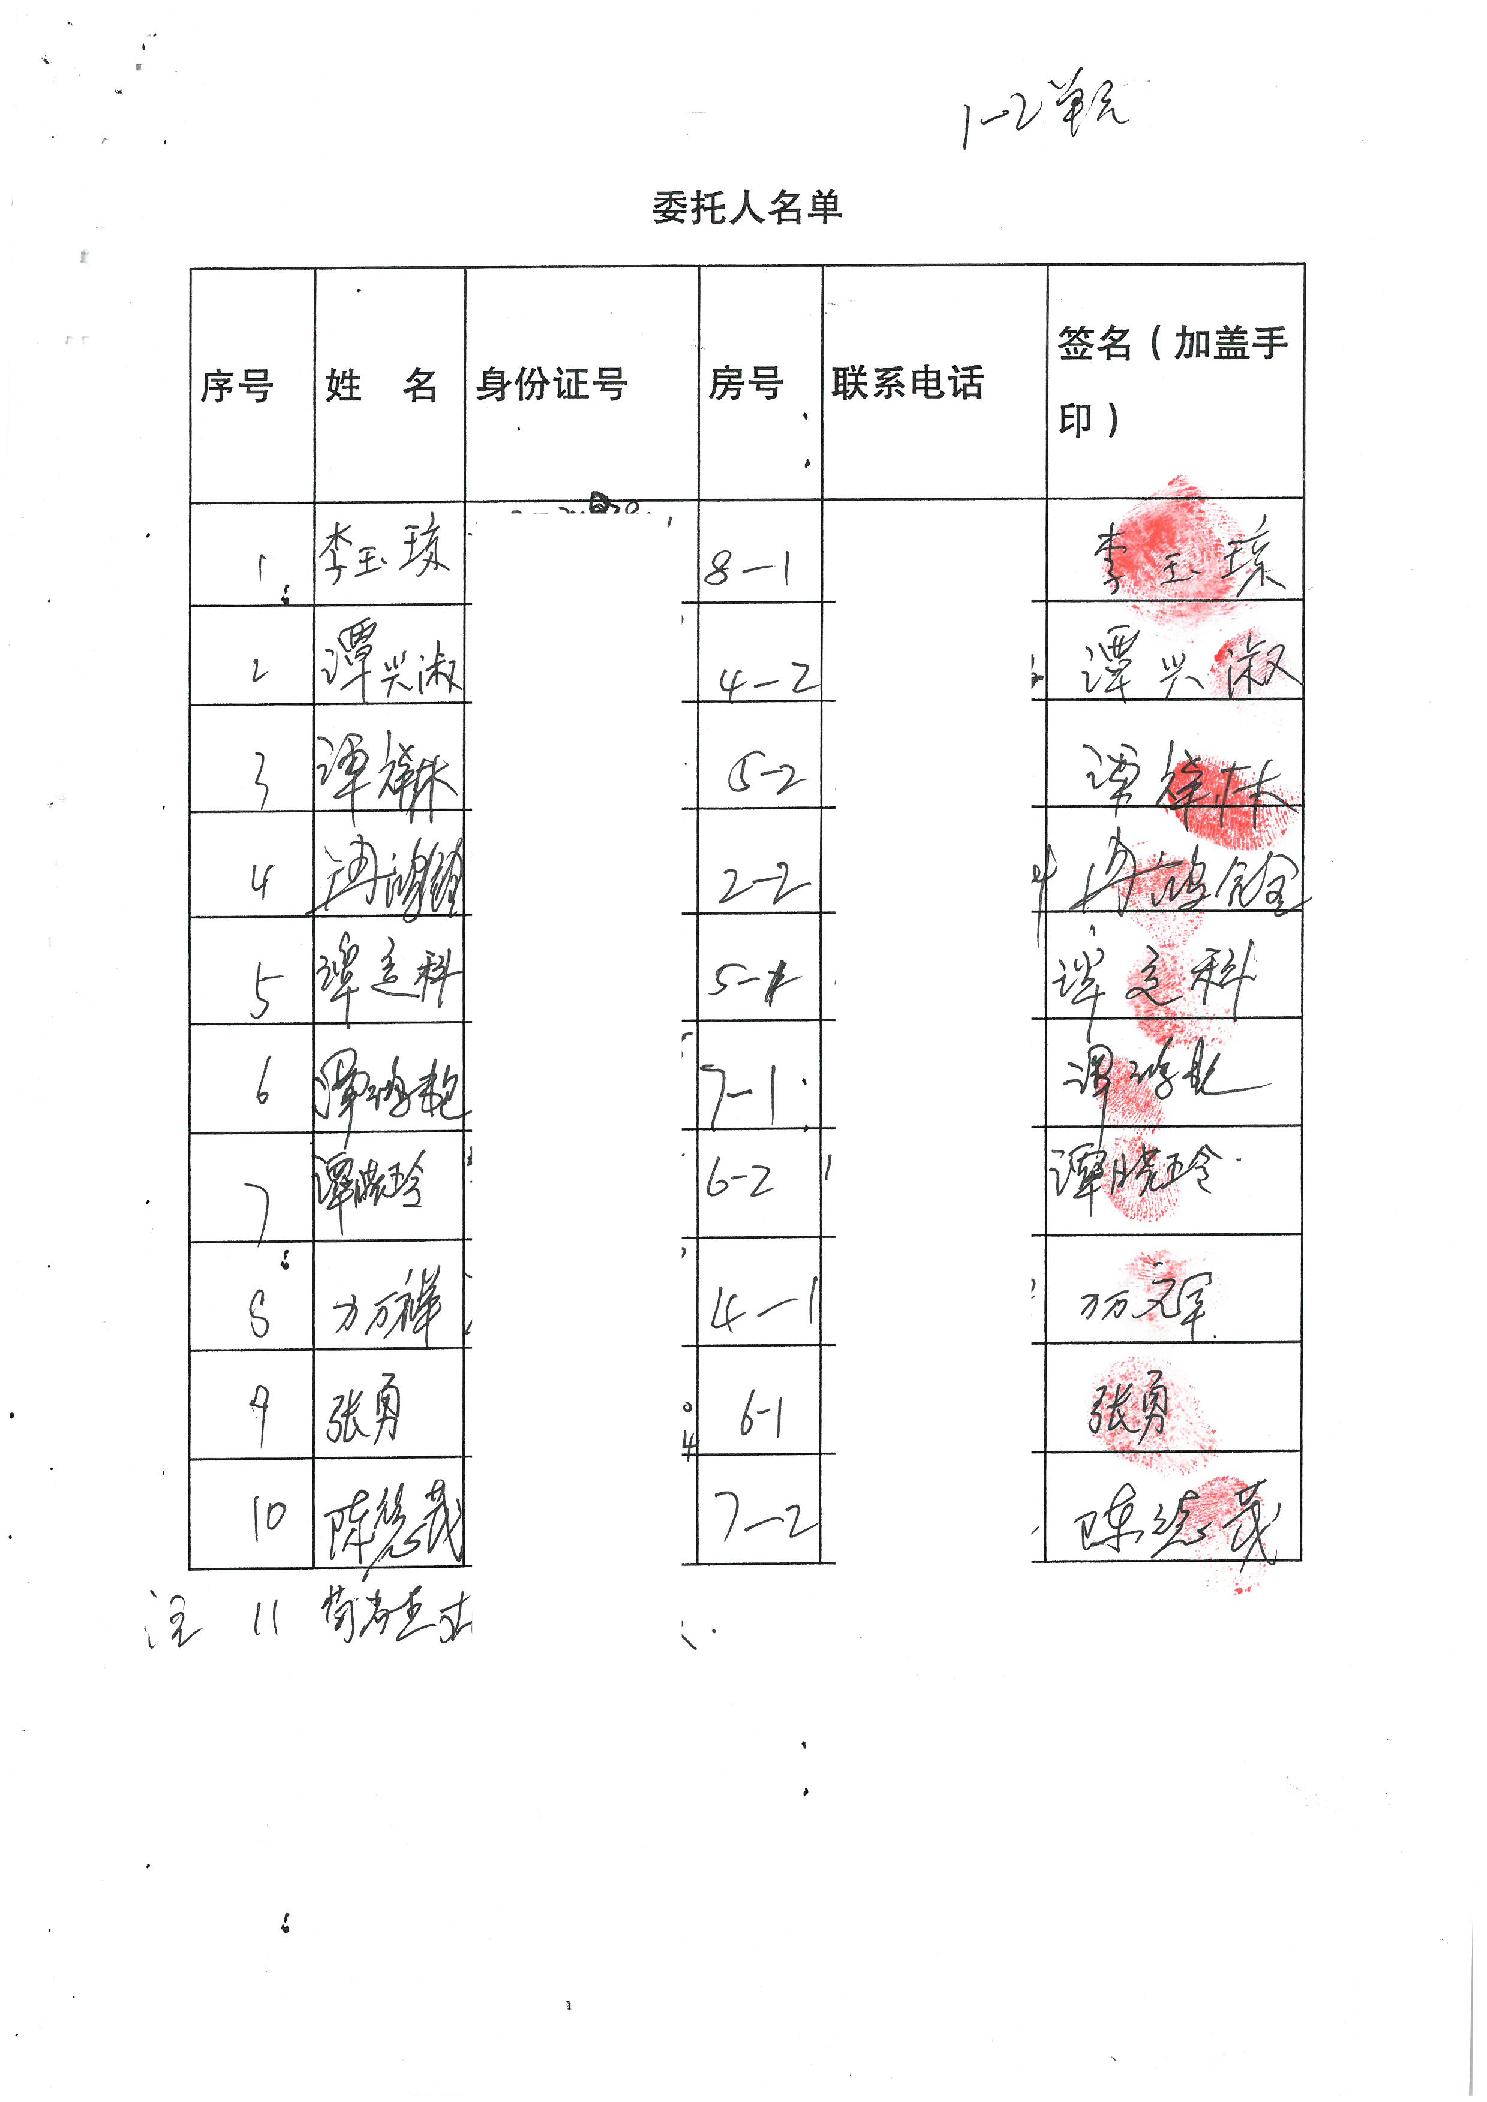 1-2单元
委托人名单
序号 姓 名 身份证号 房号 联系电话 签名（加盖手印）
1 李玉琼 8-1 李玉琼
2 谭兴淑 4-2 谭兴淑
3 谭祥林 5-2 谭祥林
4 冉鸿銓 2-2 冉鸿銓
5 谭定科 5-1 谭定科
6 谭 7-1 谭
7 谭晓玲 6-2 谭晓玲
8 4-1
9 张勇 6-1 张勇
10 陈德茂 7-2 陈德茂
注 11